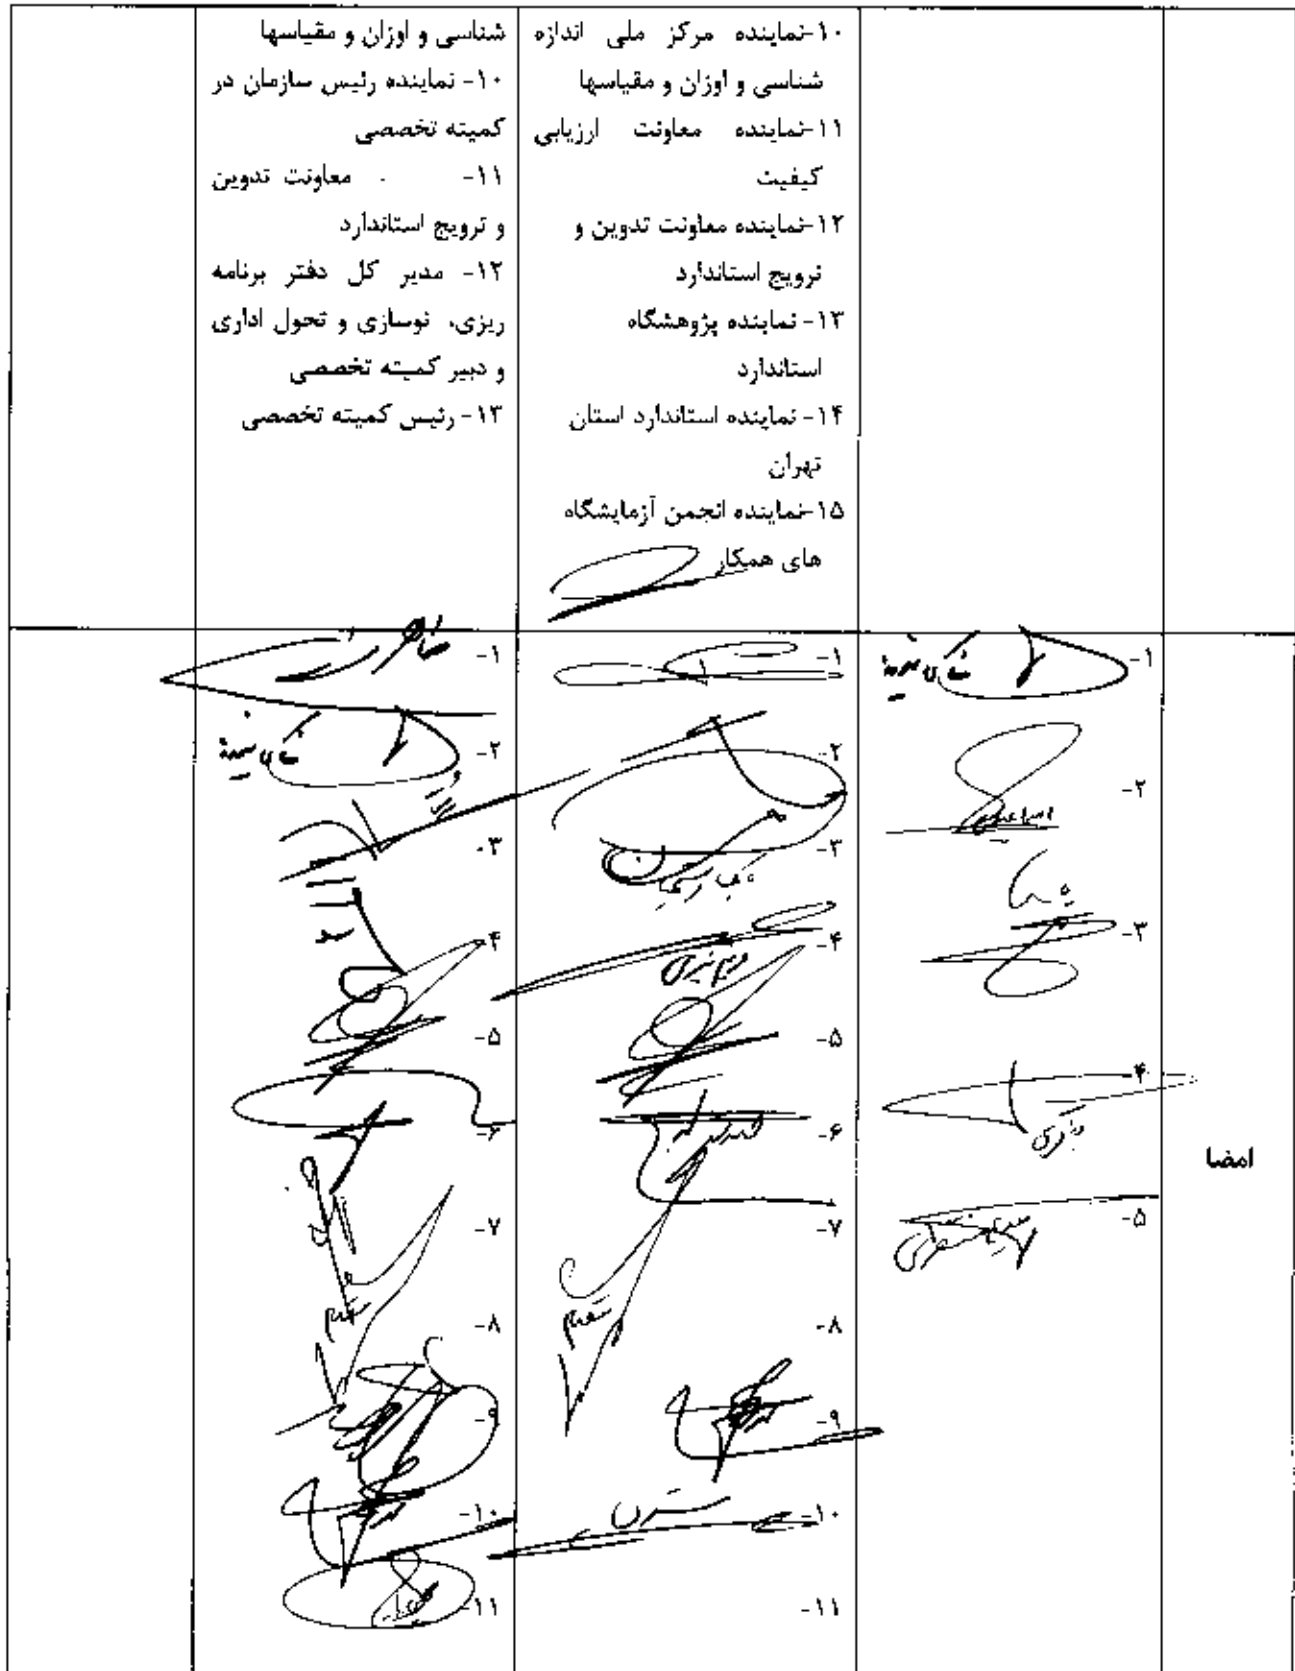 ۱۰-نماینده مرکز ملی اندازه
شناسی و اوزان و مقیاسها
۱۱-نماینده معاونت ارزیابی
کیفیت
۱۲-نماینده معاونت تدوین و
ترویج استاندارد
۱۳- نماینده پژوهشگاه
استاندارد
۱۴- نماینده استاندارد استان
تهران
۱۵-نماینده انجمن آزمایشگاه
های همکار
شناسی و اوزان و مقیاسها
۱۰- نماینده رئیس سازمان در
کمیته تخصصی
۱۱- معاونت تدوین
و ترویج استاندارد
۱۲- مدیر کل دفتر برنامه
ریزی، نوسازی و تحول اداری
و دبیر کمیته تخصصی
۱۳- رئیس کمیته تخصصی
امضا
۱-
۲-
۳-
۴-
۵-
۱-
۲-
۳-
۴-
۵-
۶-
۷-
۸-
۹-
۱۰-
۱۱-
۱-
۲-
۳-
۴-
۵-
۶-
۷-
۸-
۹-
۱۰-
۱۱-